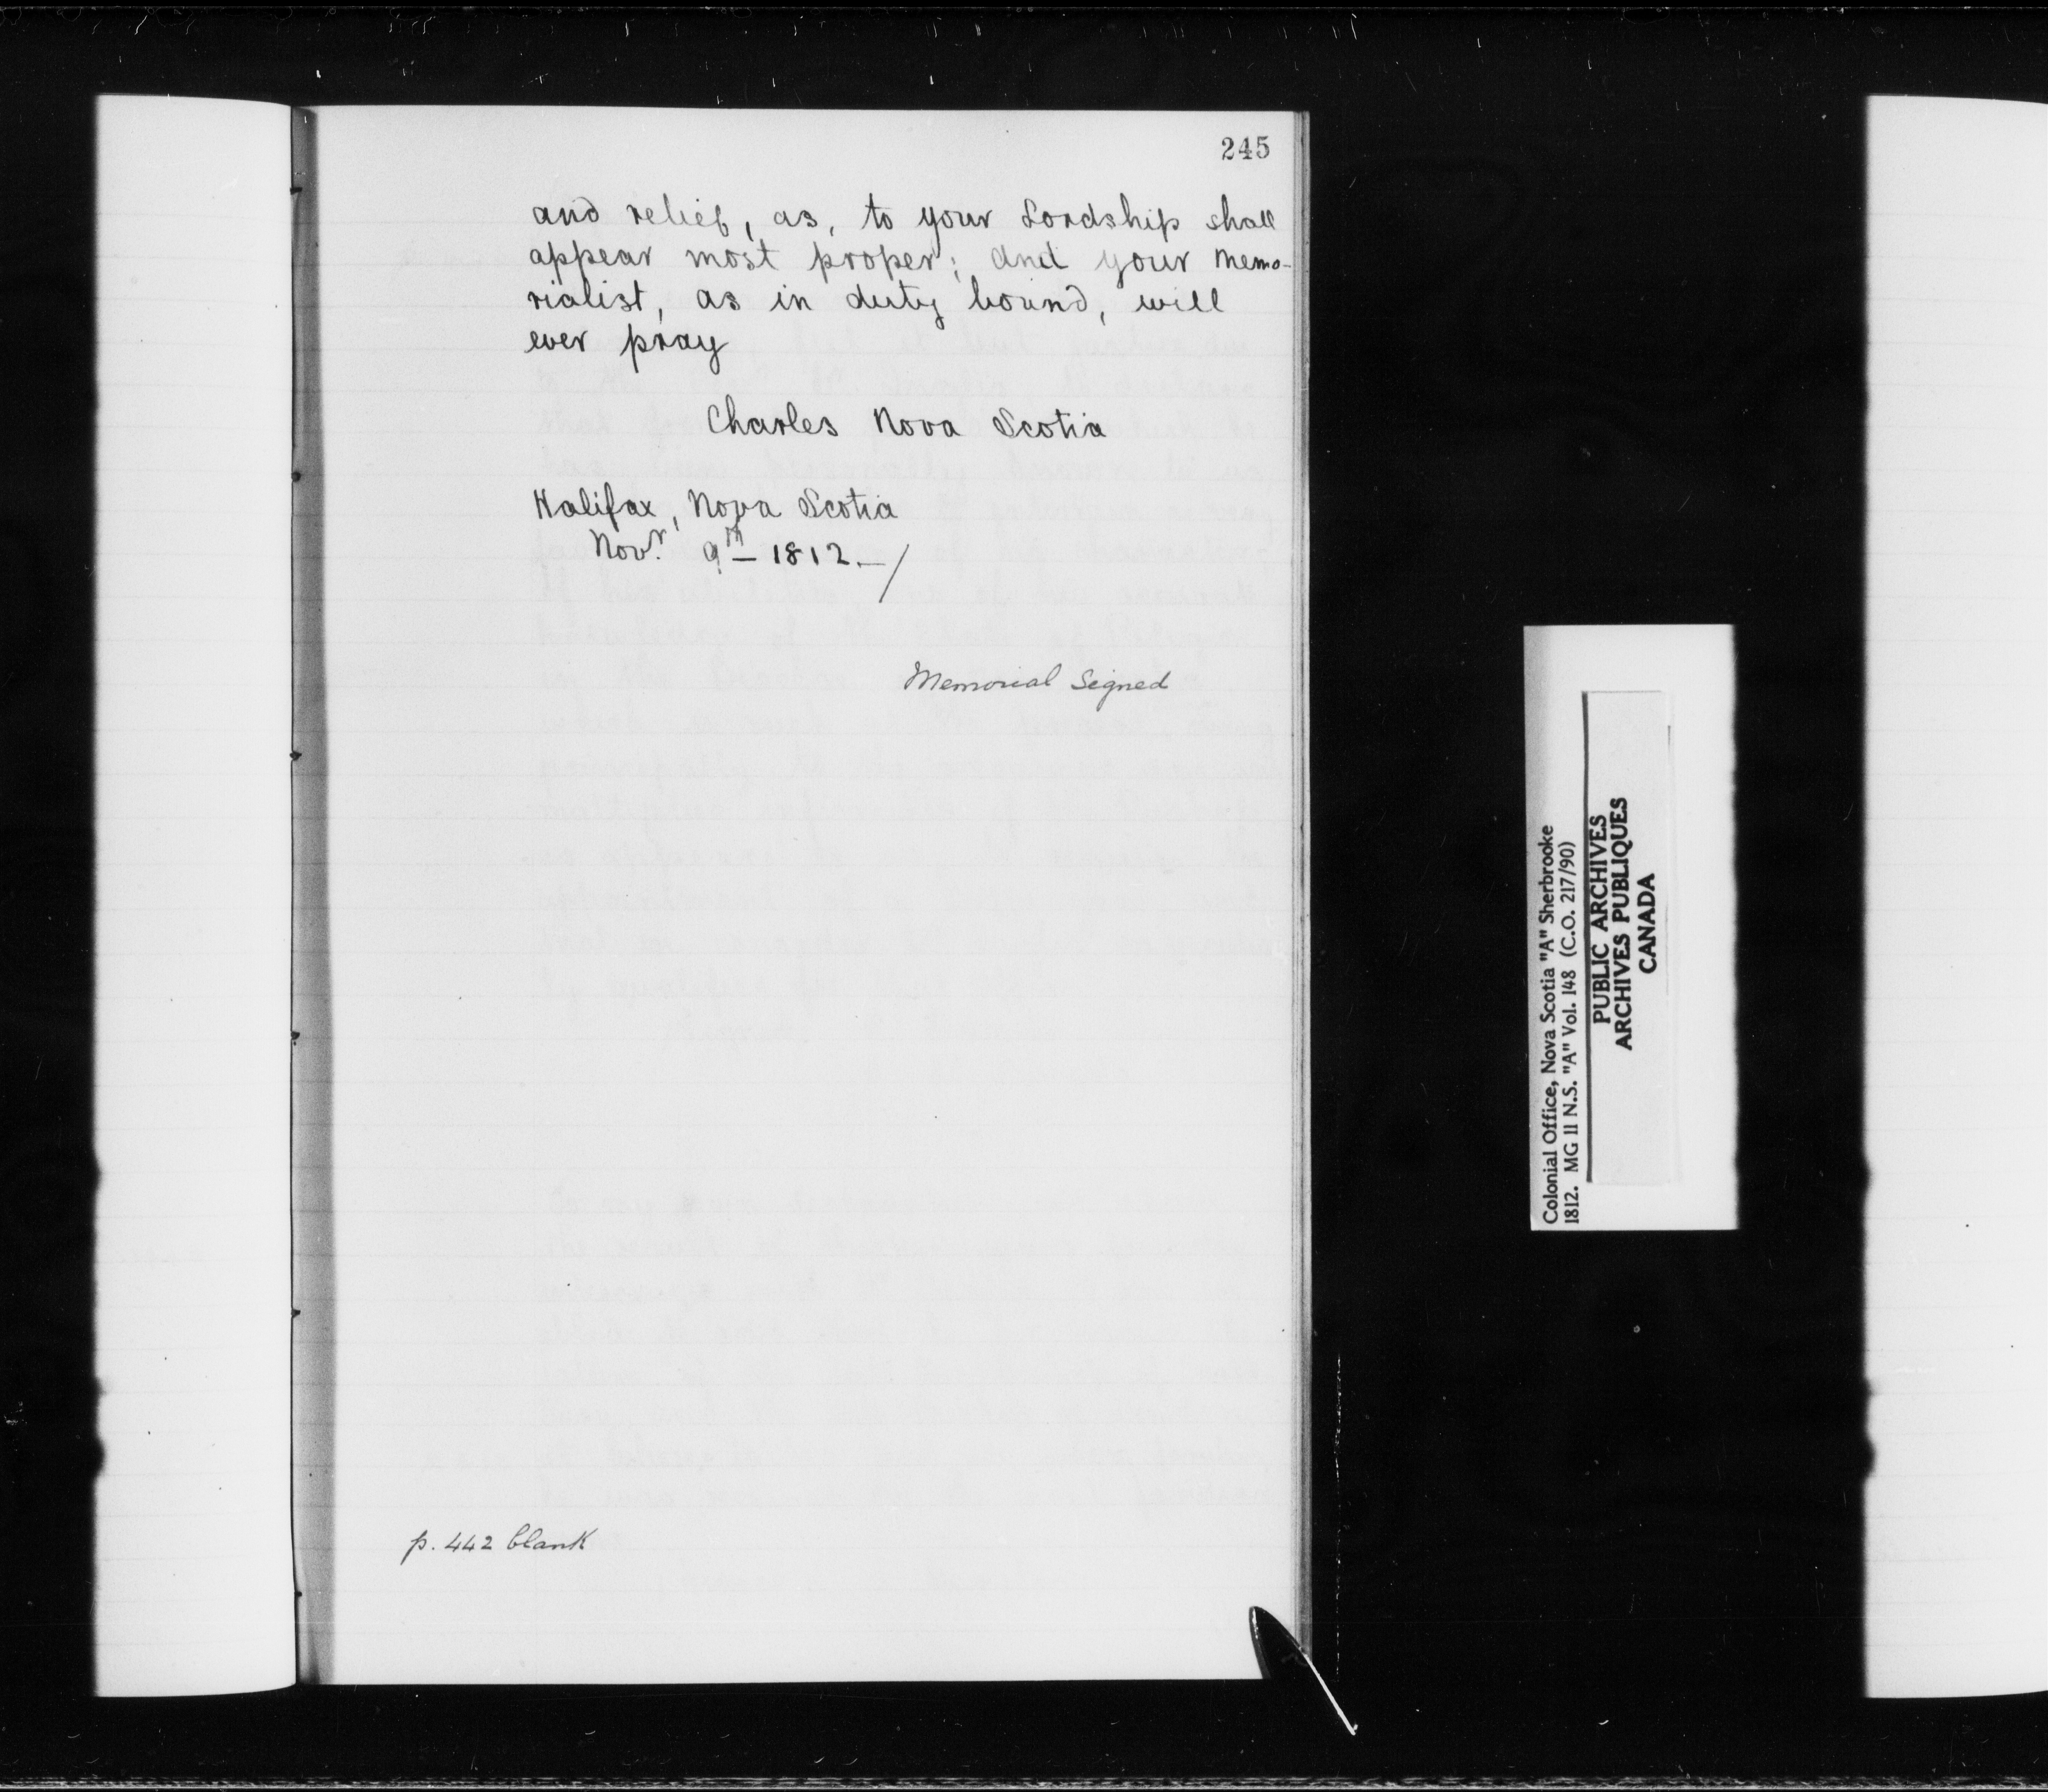 245
and relief, as, to your Lordship shall
appear most proper; and your Memo-
rialist, as in duty bound, will
ever pray
Charles Nova Scotia
Halifax, Nova Scotia
Novr. 9th - 1812. - /
Memorial Signed
p. 442 blank
Colonial Office, Nova Scotia "A" Sherbrooke
1812. MG 11 N.S. "A" Vol. 148 (C.O. 217/90)
PUBLIC ARCHIVES
ARCHIVES PUBLIQUES
CANADA